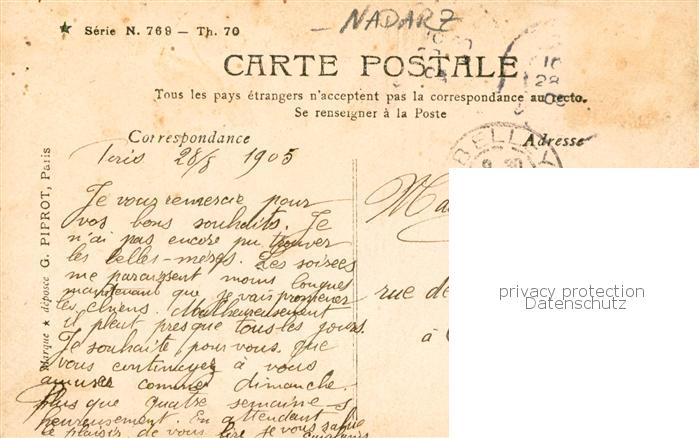 ★ Série N. 769 — Th. 70
NADAR
CARTE POSTALE
Tous les pays étrangers n'acceptent pas la correspondance au recto.
Se renseigner à la Poste
Correspondance
Adresse
Marque ★ déposée G. PIPROT, Paris
BELLEY
Paris 28/8 1905
Je vous remercie pour
vos bons souhaits. Je
n'ai pas encore pu trouver
les belles-mères. Les soirées
me paraissent moins longues
maintenant que je vais promener
les chiens. Malheureusement
il pleut presque tous les jours.
Je souhaite pour vous que
vous continuez à vous
amuser comme dimanche.
Plus que quatre semaines
heureusement. En attendant
le plaisir de vous lire je vous salue
rue de
à
privacy protection
Datenschutz